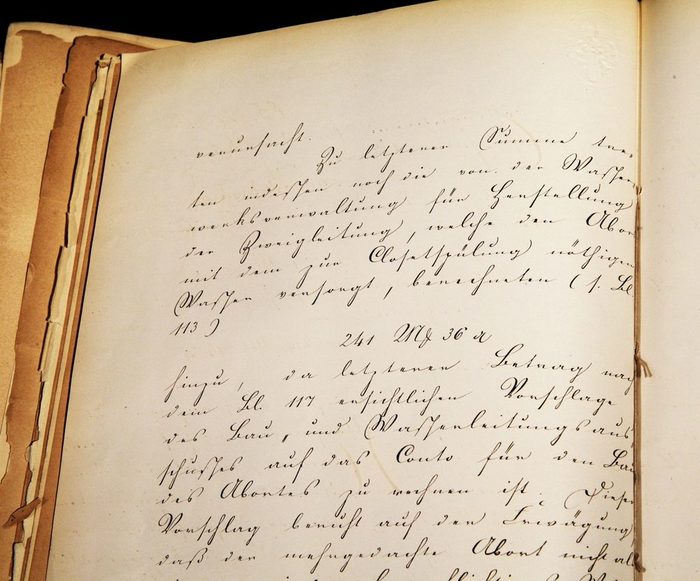 verursacht.
Zu letzterer Summe tre-
ten indessen noch die von der Wasser
werksverwaltung für Herstellung
der Zweigleitung, welche den Abor
mit dem zur Closetspülung nöthigen
Wasser versorgt, berechneten (s. Bl
113)
241 Mk 36 d
hinzu, da letzterer Betrag nach
dem Bl. 117 ersichtlichen Vorschlage
des Bau, und Wasserleitungsaus,
schusses auf das Conto für den Bau
des Abortes zu rechnen ist. Dieser
Vorschlag beruht auf der Erwägung,
daß der mehrgedachte Abort nicht all